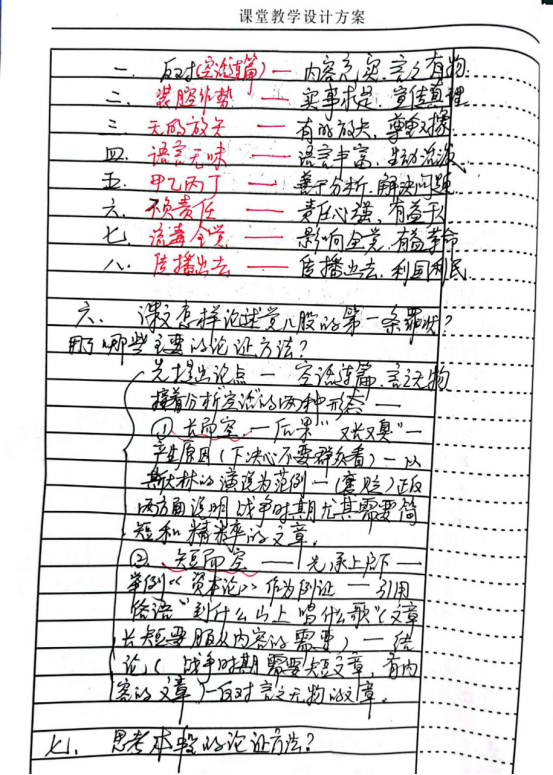 课堂教学设计方案
一、反对(空论连篇)— 内容充实、言之有物
二、装腔作势 — 实事求是、宣传真理
三、无的放矢 — 有的放矢、尊重对象
四、语言无味 — 语言丰富、生动活泼
五、甲乙丙丁 — 善于分析、解决问题
六、不负责任 — 责任心强、有益于人
七、流毒全党 — 影响全党、有益革命
八、传播出去 — 传播出去、利国利民
六、课文怎样论述党八股的第一条罪状?
用了哪些主要的论证方法?
先提出论点 — 空论连篇、言之无物
接着分析空论的两种形态 —
① 长而空 — 后果"又长又臭"—
产生原因(下决心不要群众看)— 以
斯大林的演说为范例 — 正反
两方面说明战争时期尤其需要简
短和精粹的文章。
② 短而空 — 先承上启下 —
举例《资本论》作为例证 — 引用
俗语"到什么山上唱什么歌"(文章
长短要服从内容的需要)— 结
论(战争时期需要短文章,有内
容的文章)— 反对言之无物的文章。
七、思考本段的论证方法?